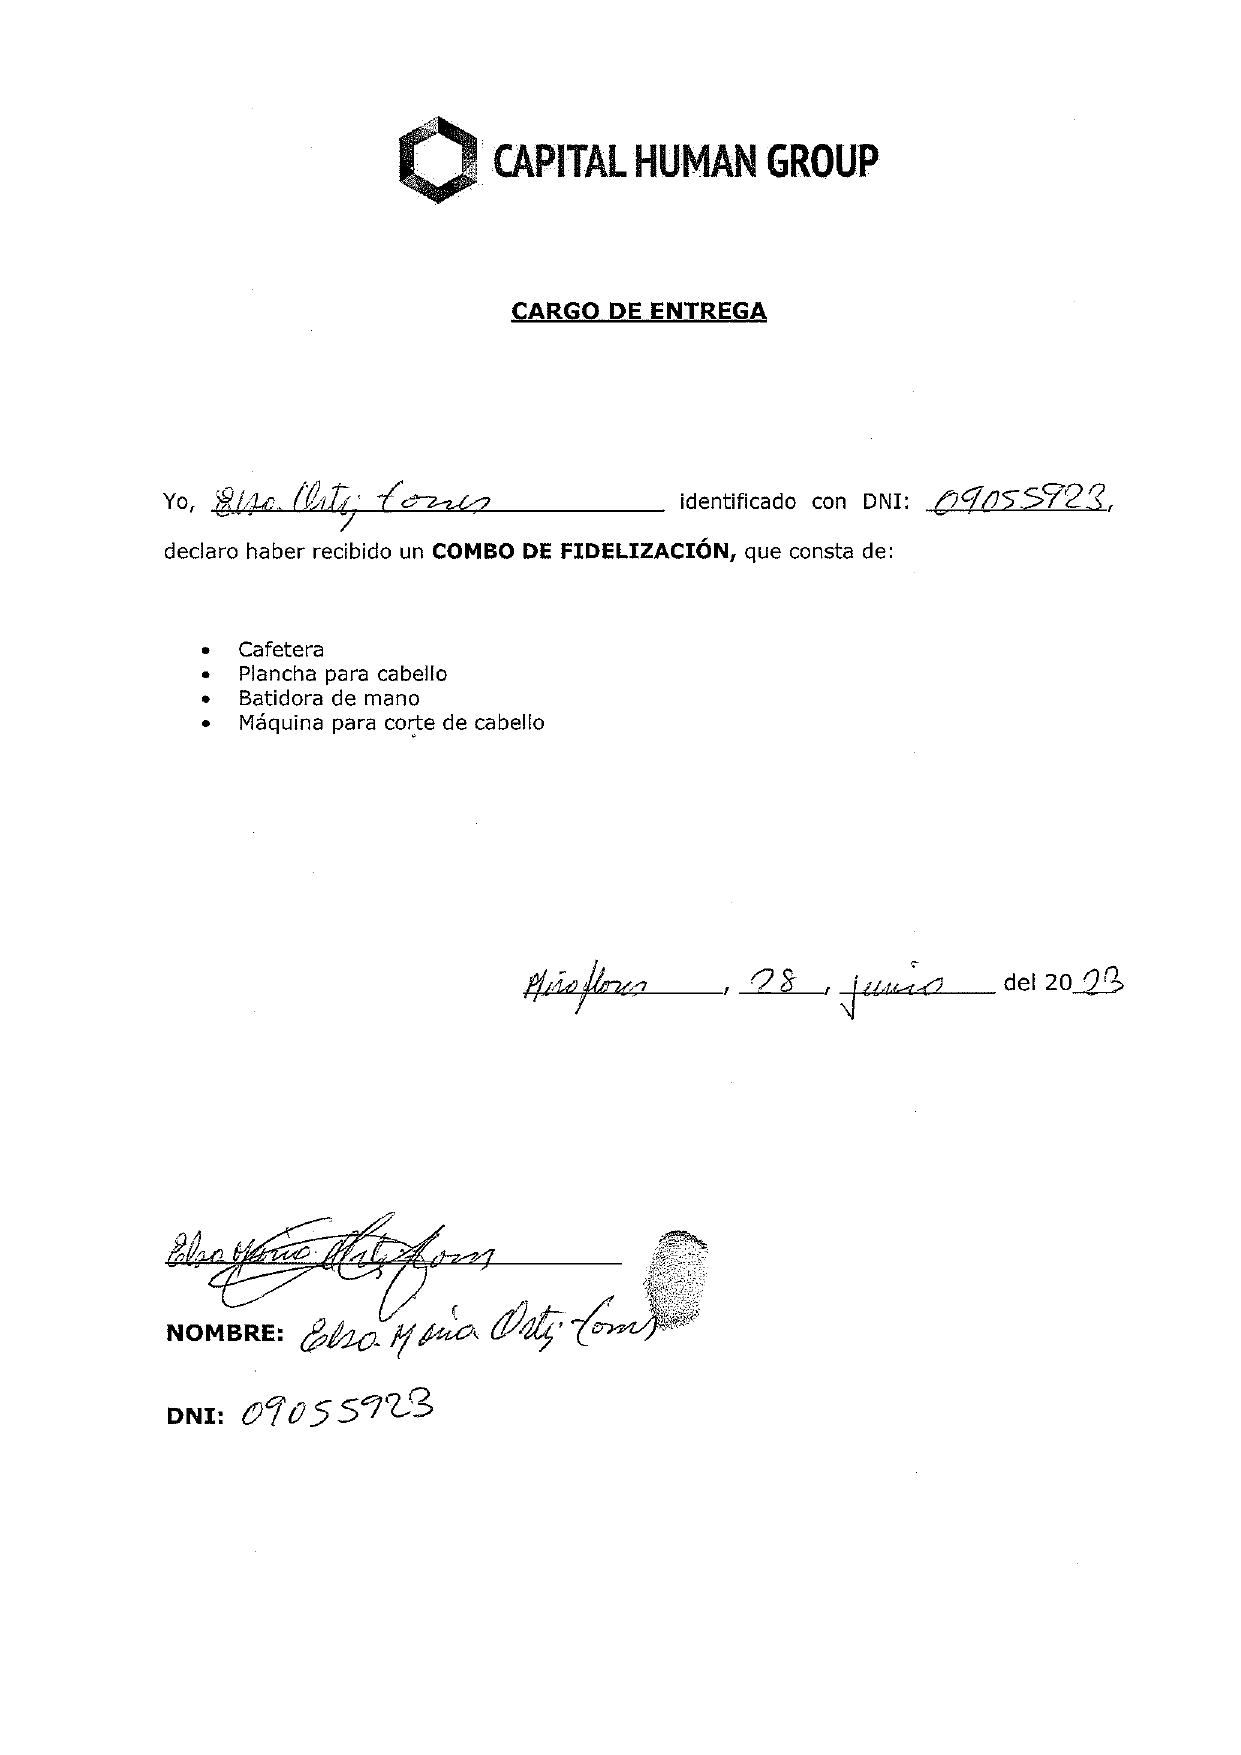 CAPITAL HUMAN GROUP
CARGO DE ENTREGA
Yo, Elsa Ortiz Torres identificado con DNI: 09055923,
declaro haber recibido un COMBO DE FIDELIZACIÓN, que consta de:
• Cafetera
• Plancha para cabello
• Batidora de mano
• Máquina para corte de cabello
Miraflores, 28, junio del 2023
Elsa María Ortiz Torres
NOMBRE: Elsa María Ortiz Torres
DNI: 09055923